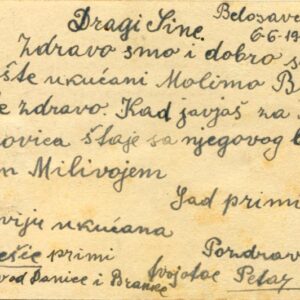 Dragi Sine. Belosavc
6-6-19
Zdravo smo i dobro s
šte ukućani Molimo B
e zdravo. Kad javjaš za
ovica štaje sa njegovog b
m Milivojem
Sad primi
viju ukućana
ešić primi Pozdrav
vod Danice i Branke tvojotac Petar